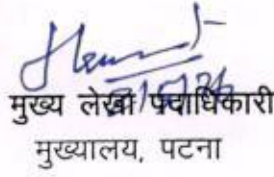 मुख्य लेखा पदाधिकारी
मुख्यालय, पटना